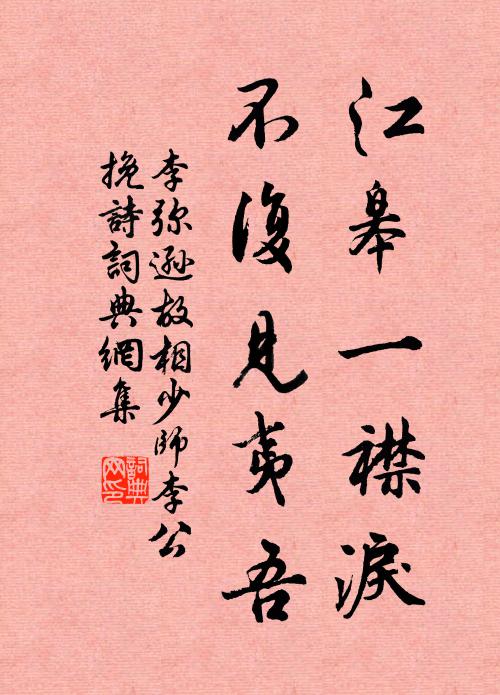 江皋一襟淚
不復見夷吾
李弥遜故相少師李公
挽詩詞典網集
詞典
网印